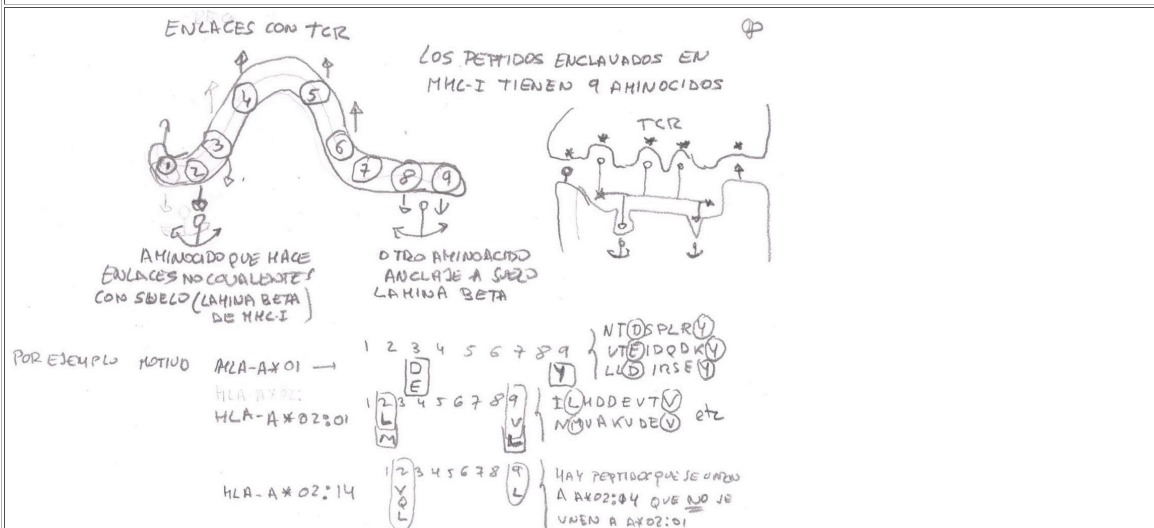 ENLACES CON TCR
LOS PEPTIDOS ENCLAVADOS EN
MHC-I TIENEN 9 AMINOCIDOS
TCR
1 2 3 4 5 6 7 8 9
AMINOCIDO QUE HACE
ENLACES NO COVALENTES
CON SUELO (LAMINA BETA
DE MHC-I)
OTRO AMINOACIDO
ANCLAJE A SUELO
LAMINA BETA
POR EJEMPLO MOTIVO HLA-A*01 →
1 2 3 4 5 6 7 8 9
D
E
Y
NTDSPLRY
VTEIDQDKY
LLDIRSEY
HLA-A*02:
HLA-A*02:01
1 2 3 4 5 6 7 8 9
L
M
V
L
ILHDDEVTV
NMVAKVDEV etc
HLA-A*02:14
1 2 3 4 5 6 7 8 9
V
Q
L
L
HAY PEPTIDOS QUE SE UNEN
A A*02:14 QUE NO SE
UNEN A A*02:01